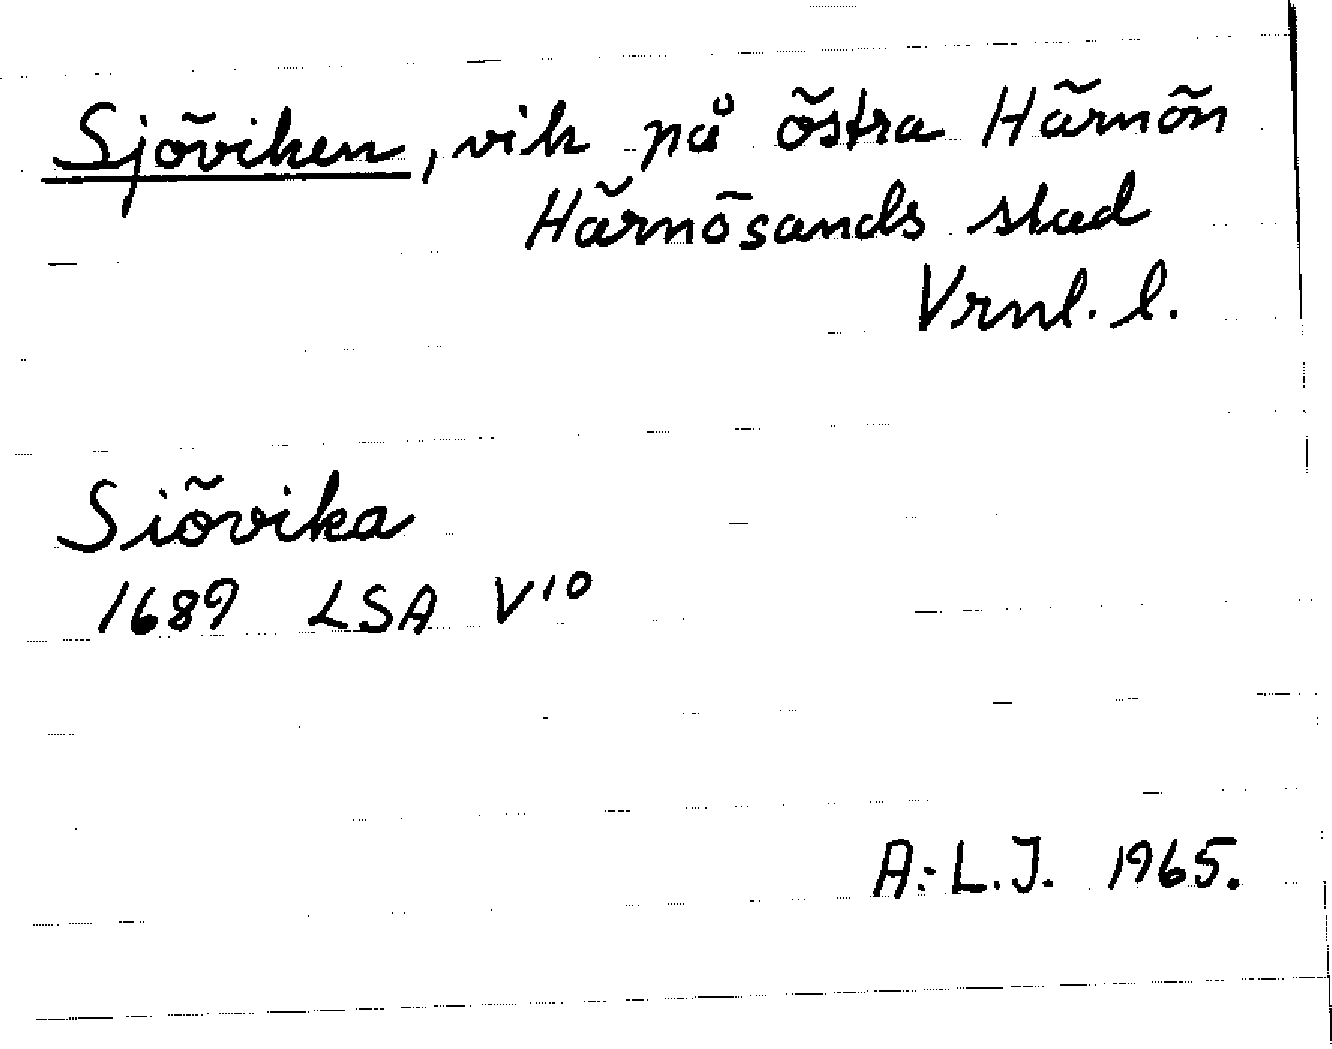 Sjöviken, vik på östra Härnön
Härnösands stad
Vrnl. l.
Siövika
1689 LSA V10
A.-L.J. 1965.